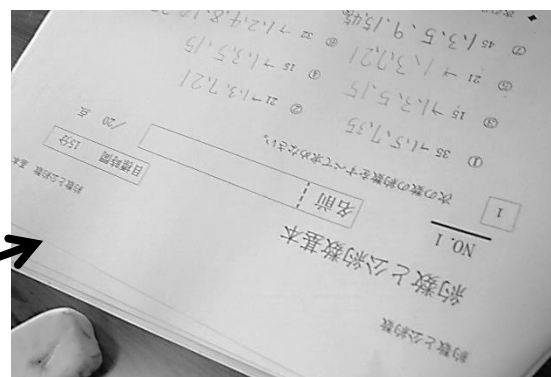 約数と公約数
約数と公約数基本
約数と公約数 基本
NO. 1
名前
目標時間 15分
/20 点
1 次の数の約数をすべて求めなさい。
① 35 → 1,5,7,35
② 21 → 1,3,7,21
③ 15 → 1,3,5,15
④ 15 → 1,3,5,15
⑤ 21 → 1,3,7,21
⑥ 32 → 1,2,4,8,
⑦ 45 → 1,3,5,9,15,45